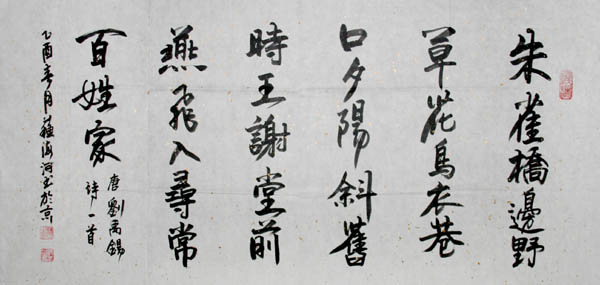 朱雀橋邊野
草花烏衣巷
口夕陽斜舊
時王謝堂前
燕飛入尋常
百姓家
唐劉禹錫
詩一首
乙酉春月蘇海河書於京